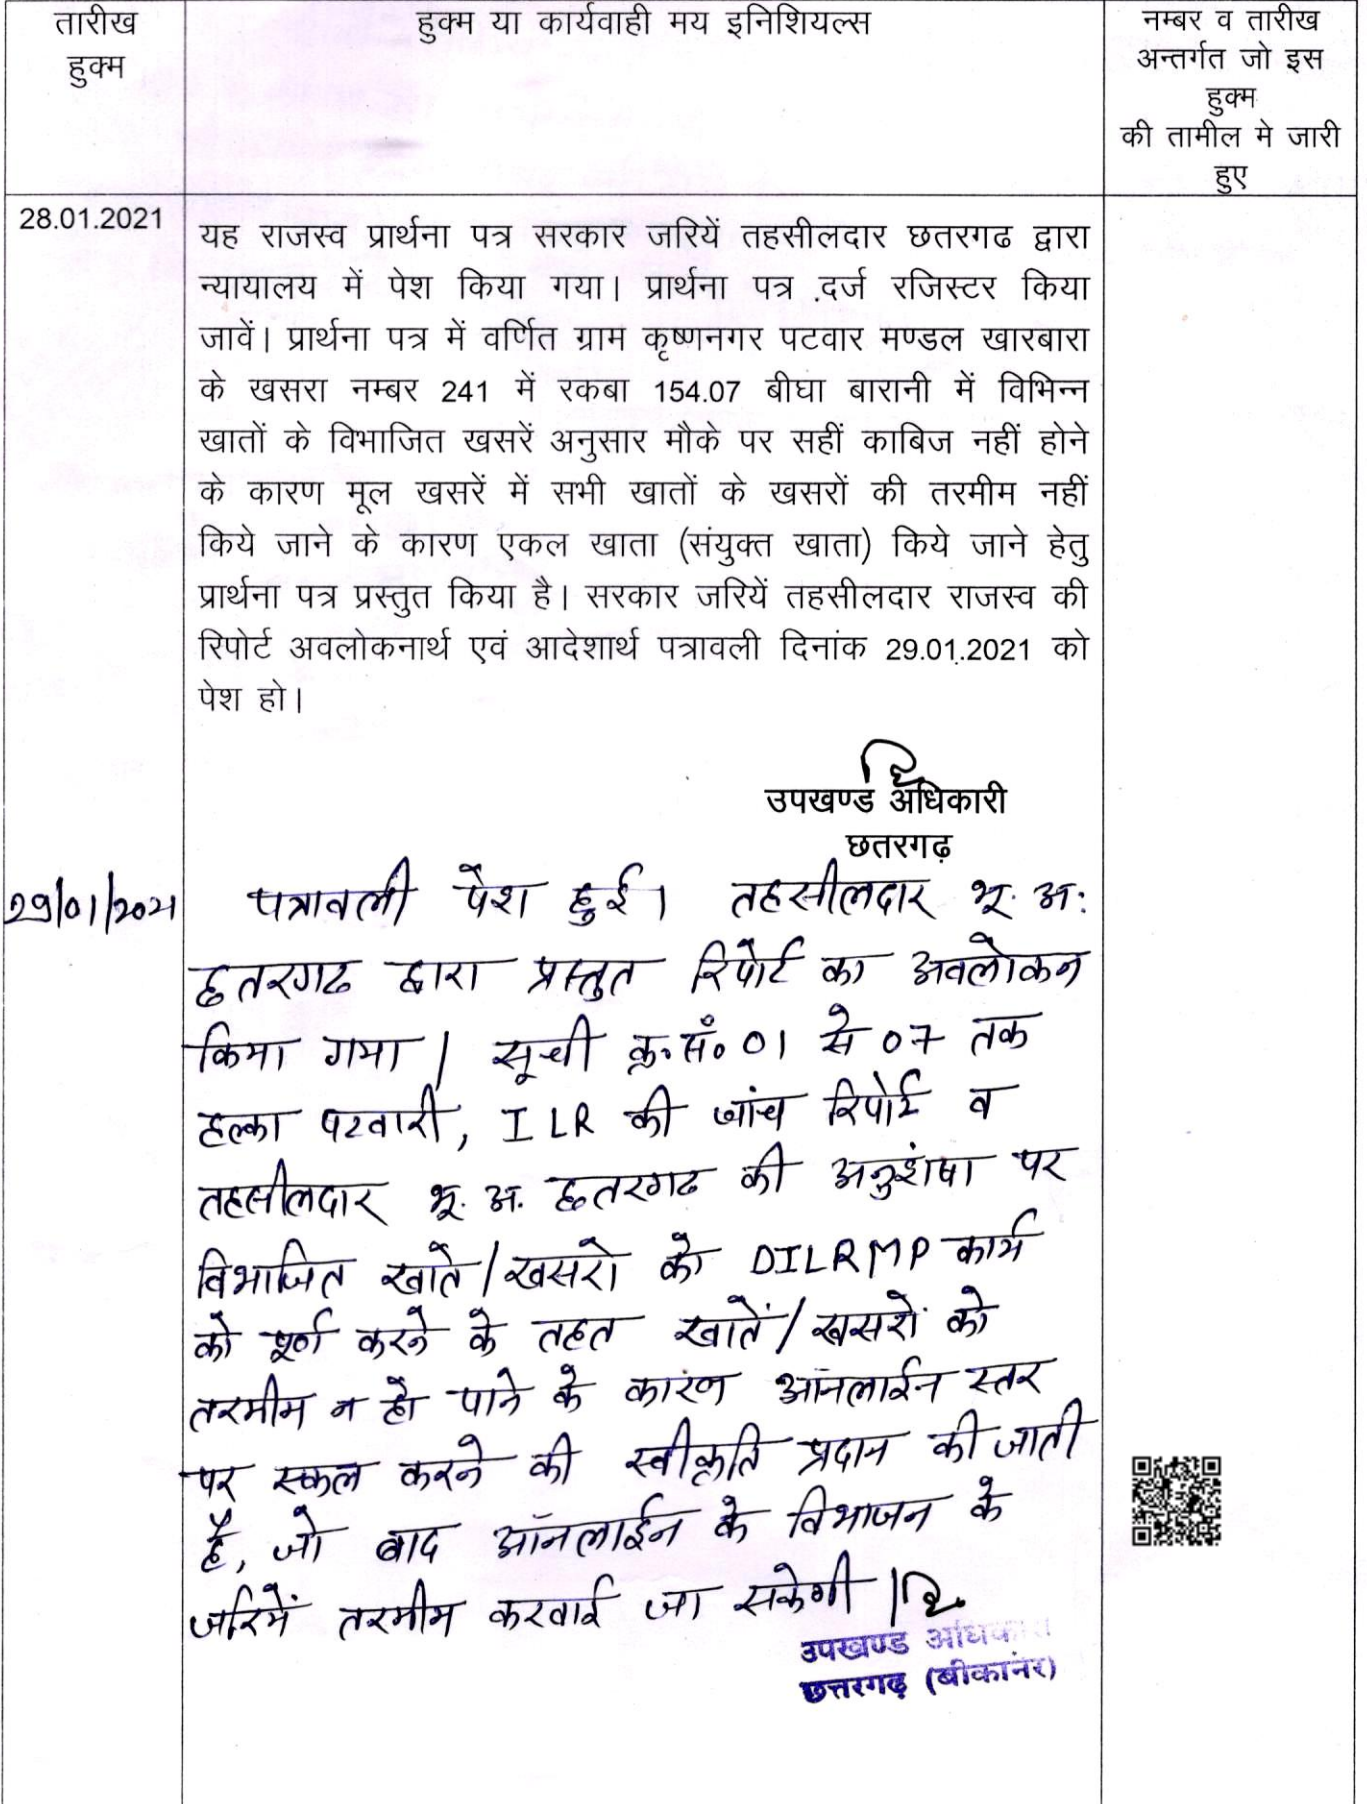 तारीख
हुक्म
हुक्म या कार्यवाही मय इनिशियल्स
नम्बर व तारीख
अन्तर्गत जो इस
हुक्म
की तामील मे जारी
हुए
28.01.2021
यह राजस्व प्रार्थना पत्र सरकार जरियें तहसीलदार छतरगढ द्वारा
न्यायालय में पेश किया गया। प्रार्थना पत्र दर्ज रजिस्टर किया
जावें। प्रार्थना पत्र में वर्णित ग्राम कृष्णनगर पटवार मण्डल खारबारा
के खसरा नम्बर 241 में रकबा 154.07 बीघा बारानी में विभिन्न
खातों के विभाजित खसरें अनुसार मौके पर सहीं काबिज नहीं होने
के कारण मूल खसरें में सभी खातों के खसरों की तरमीम नहीं
किये जाने के कारण एकल खाता (संयुक्त खाता) किये जाने हेतु
प्रार्थना पत्र प्रस्तुत किया है। सरकार जरियें तहसीलदार राजस्व की
रिपोर्ट अवलोकनार्थ एवं आदेशार्थ पत्रावली दिनांक 29.01.2021 को
पेश हो।
उपखण्ड अधिकारी
छतरगढ़
29/01/2021
पत्रावली पेश हुई। तहसीलदार भू. अ.
छतरगढ द्वारा प्रस्तुत रिपोर्ट का अवलोकन
किया गया। सूची क्र.सं. 01 से 07 तक
हल्का पटवारी, ILR की जांच रिपोर्ट व
तहसीलदार भू. अ. छतरगढ की अनुशंषा पर
विभाजित खाते/खसरो को DILRMP कार्य
को पूर्ण करने के तहत खातें/खसरों को
तरमीम न हो पाने के कारण ऑनलाईन स्तर
पर स्कल करने की स्वीकृति प्रदान की जाती
है, जो बाद ऑनलाईन के विभाजन के
जरियें तरमीम करवाई जा सकेगी।
उपखण्ड अधिकारी
छत्तरगढ़ (बीकानेर)